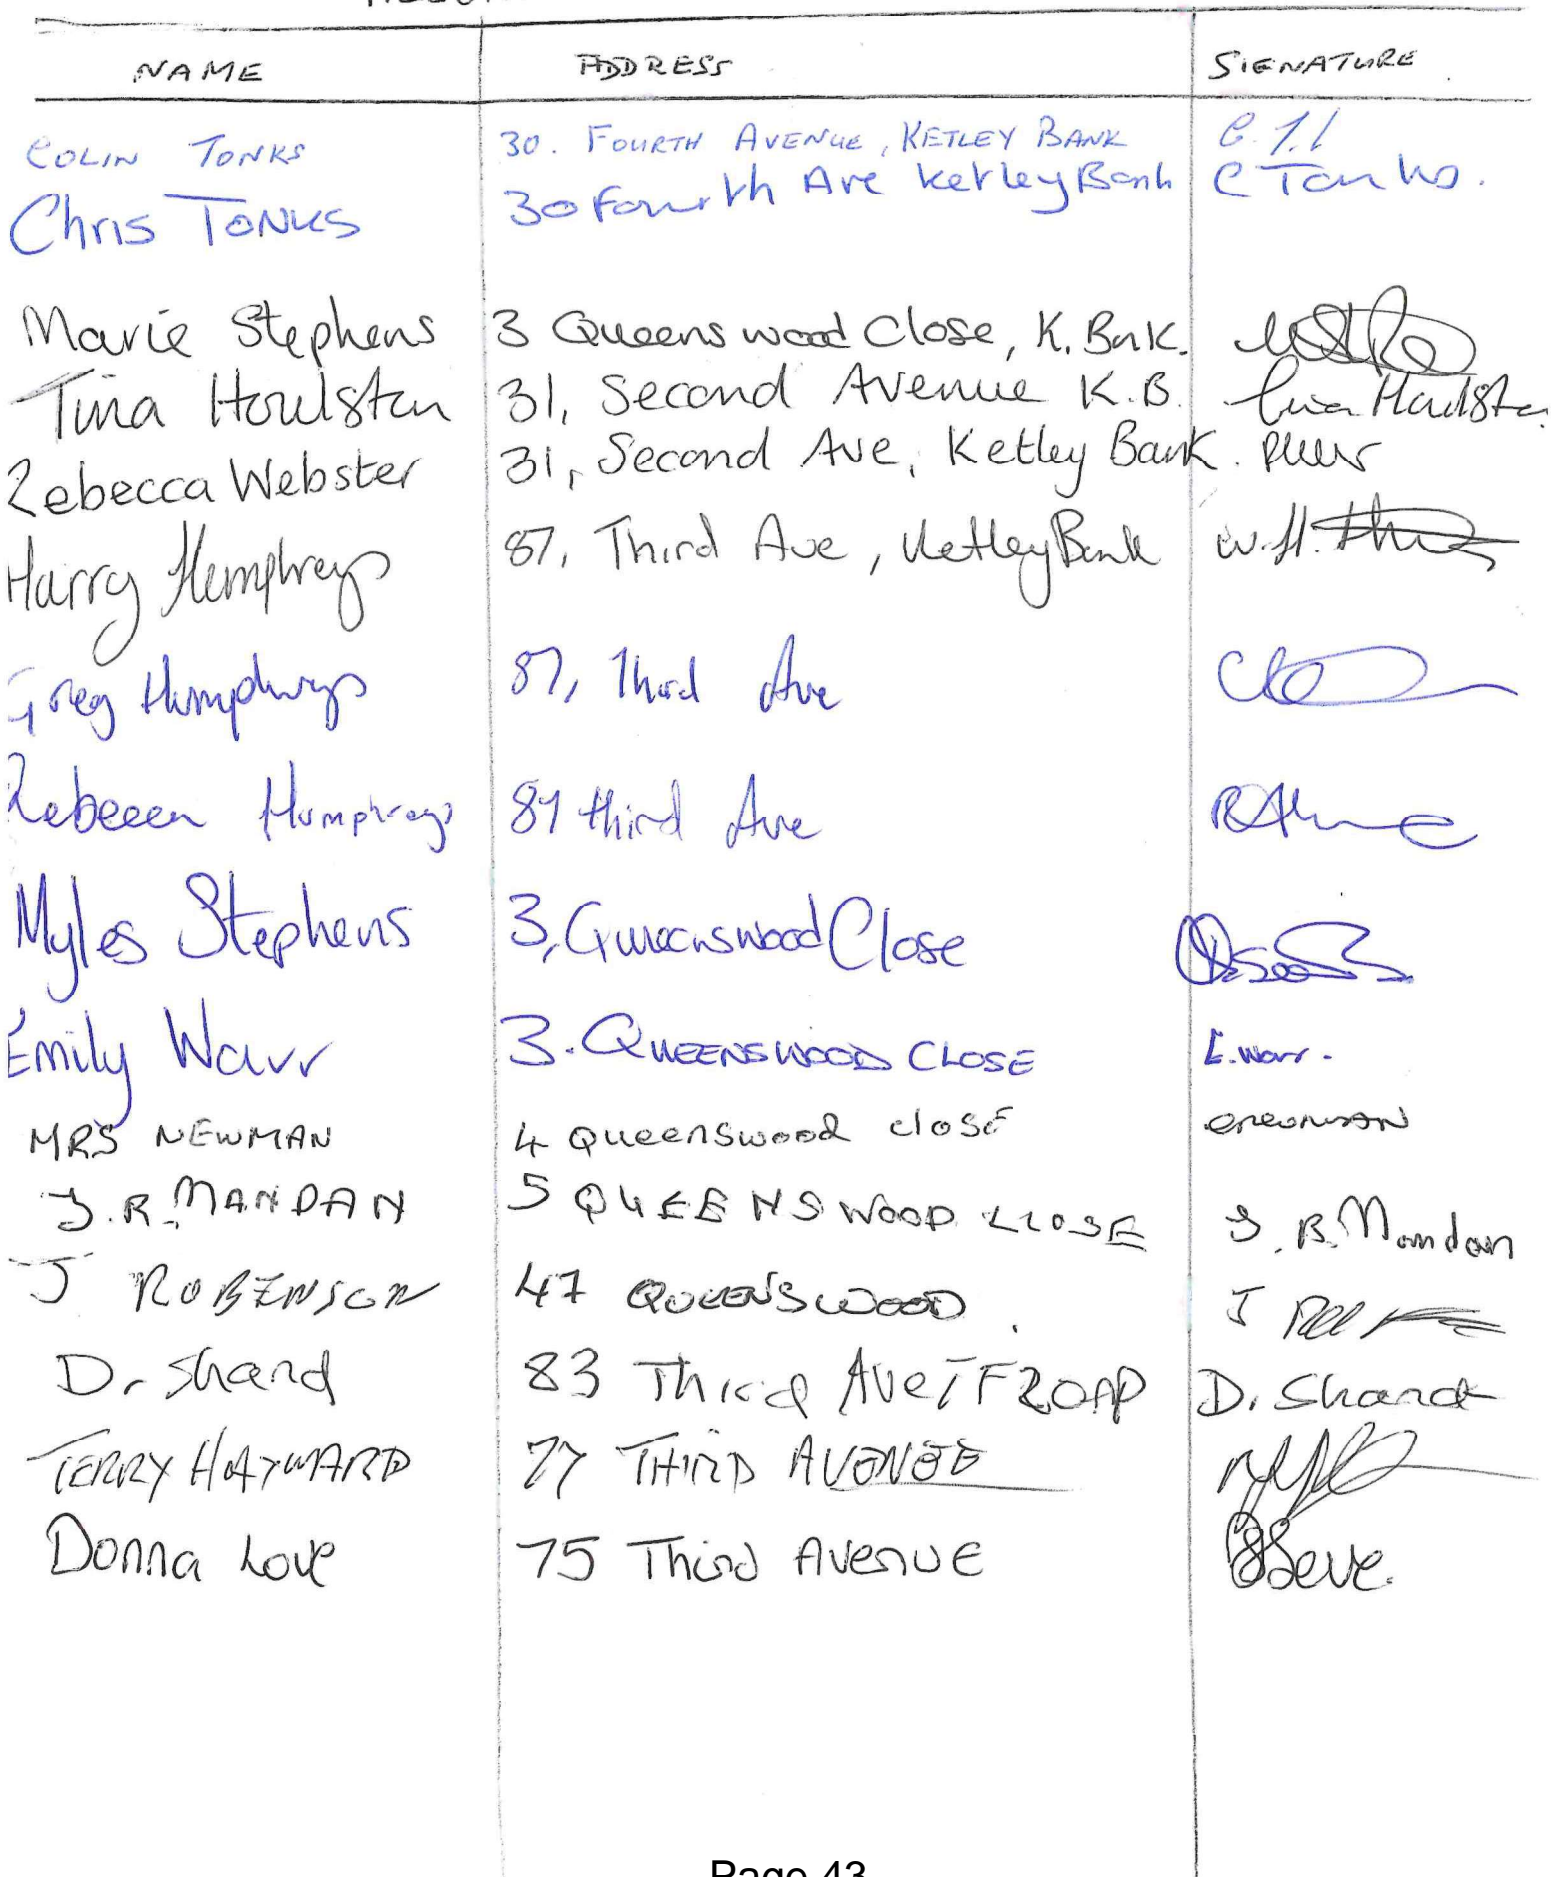 NAME ADDRESS SIGNATURE
COLIN TONKS 30. FOURTH AVENUE, KETLEY BANK
Chris TONKS 30 Fourth Ave Ketley Bank C Tonks.
Marie Stephens 3 Queenswood Close, K. Bnk.
Tina Houlston 31, Second Avenue K.B. Tina Houlston
Rebecca Webster 31, Second Ave, Ketley Bank.
Harry Humphreys 87, Third Ave, Ketley Bank W.H.
Greg Humphreys 87, Third Ave
Rebecca Humphreys 87 third Ave
Myles Stephens 3, Queenswood Close
Emily Warr 3. QUEENSWOOD CLOSE E. Warr.
MRS NEWMAN 4 Queenswood close
J.R. MANDAN 5 QUEENSWOOD CLOSE J. R. Mandan
J ROBINSON 47 QUEENSWOOD J
D. Shand 83 Third Ave TFROAD D. Shand
TERRY HAYWARD 77 THIRD AVENUE
Donna Love 75 Third Avenue
Page 43